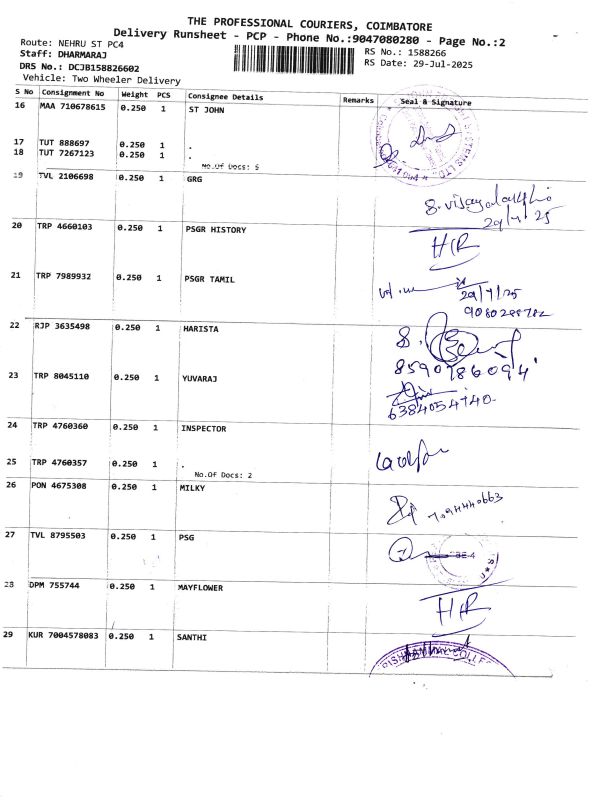 THE PROFESSIONAL COURIERS, COIMBATORE
Delivery Runsheet - PCP - Phone No.:9047080280 - Page No.:2
Route: NEHRU ST PC4
RS No.: 1588266
Staff: DHARMARAJ
RS Date: 29-Jul-2025
DRS No.: DCJB158826602
Vehicle: Two Wheeler Delivery
S No Consignment No Weight PCS Consignee Details Remarks Seal & Signature
16 MAA 710678615 0.250 1 ST JOHN
17 TUT 888697 0.250 1 .
18 TUT 7267123 0.250 1 .
No.Of Docs: 5
19 TVL 2106698 0.250 1 GRG
29/7/25
20 TRP 4660103 0.250 1 PSGR HISTORY
21 TRP 7989932 0.250 1 PSGR TAMIL
29/7/25
22 RJP 3635498 0.250 1 HARISTA
23 TRP 8045110 0.250 1 YUVARAJ
6384054740
24 TRP 4760360 0.250 1 INSPECTOR
25 TRP 4760357 0.250 1 .
No.Of Docs: 2
26 PON 4675308 0.250 1 MILKY
7094440663
27 TVL 8795503 0.250 1 PSG
28 DPM 755744 0.250 1 MAYFLOWER
29 KUR 7004578083 0.250 1 SANTHI